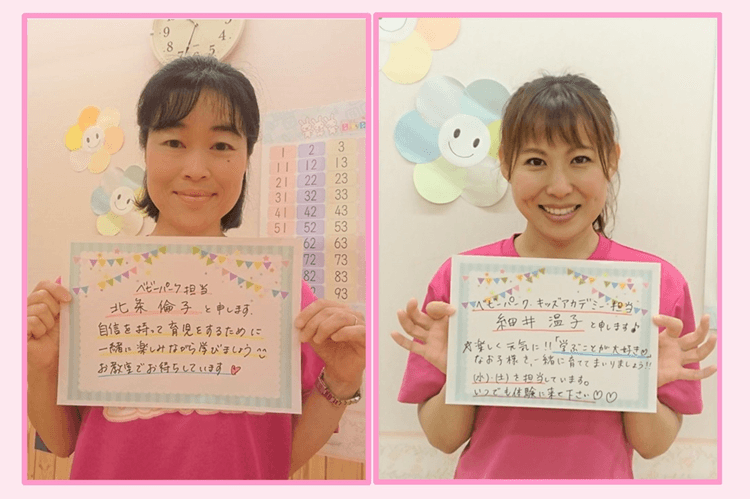 ベビーパーク担当
北条 倫子 と申します.
自信を持って育児をするために
一緒に楽しみながら学びましょう
お教室でお待ちしています♡
1 2 3
11 12 13
21 22 23
31 32 33
41 42 43
51 52 53
62 63
72 73
82 83
92 93
ベビーパーク キッズアカデミー担当
細井 温子 と申します♪
楽しく元気に!!「学ぶことが大好き♡」
なお子様を、一緒に育ててまいりましょう!!
(水)・(土)を担当しています。
いつでも体験に来て下さい♡♡